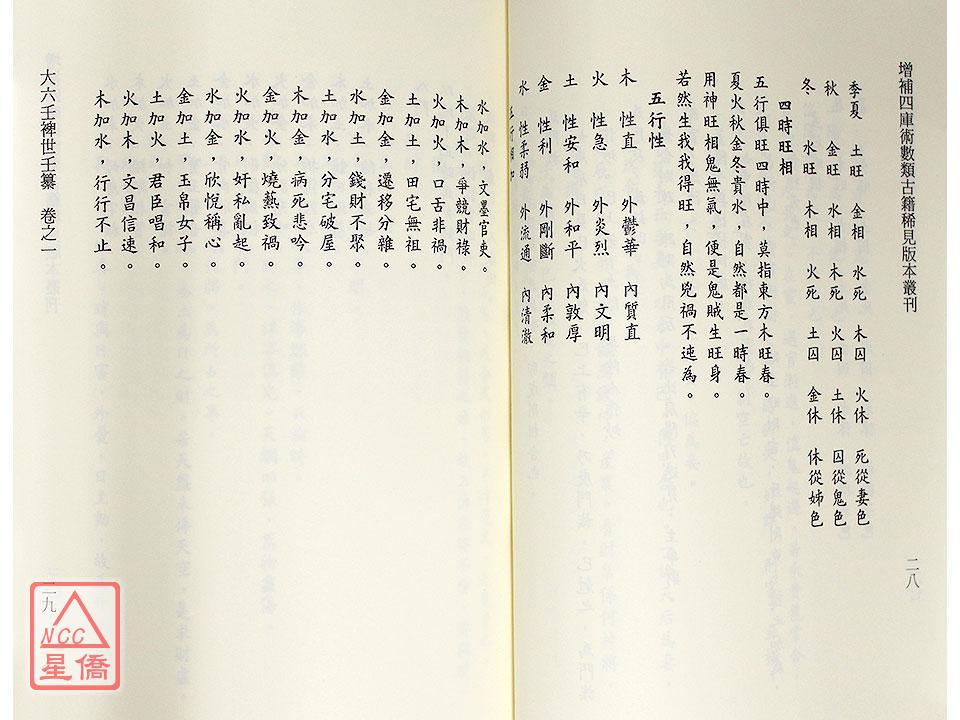 增補四庫術數類古籍稀見版本叢刊
二八
季夏 土旺 金相 水死 木囚 火休 死從妻色
秋 金旺 水相 木死 火囚 土休 囚從鬼色
冬 水旺 木相 火死 土囚 金休 休從姊色
四時旺相
五行俱旺四時中，莫指東方木旺春。
夏火秋金冬貴水，自然都是一時春。
用神旺相鬼無氣，便是鬼賊生旺身。
若然生我我得旺，自然兇禍不迍為。
五行性
木 性直 外鬱華 內質直
火 性急 外炎烈 內文明
土 性安和 外和平 內敦厚
金 性利 外剛斷 內柔和
水 性柔弱 外流通 內清澈
五行相加
水加水，文墨官吏。
木加木，爭競財祿。
火加火，口舌非禍。
土加土，田宅無祖。
金加金，遷移分離。
水加土，錢財不聚。
土加水，分宅破屋。
木加金，病死悲吟。
金加火，燒爇致禍。
火加水，奸私亂起。
水加金，欣悅稱心。
金加土，玉帛女子。
土加火，君臣唱和。
火加木，文昌信速。
木加水，行行不止。
大六壬裨世壬纂 卷之二
二九
NCC
星僑